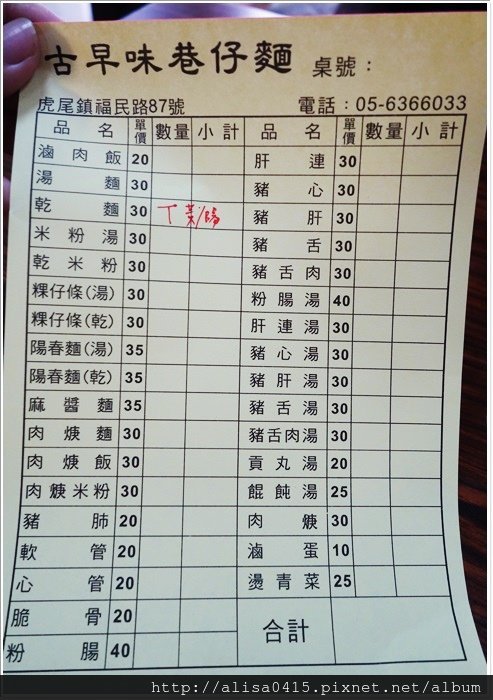 古早味巷仔麵 桌號：
虎尾鎮福民路87號 電話：05-6366033
品名 單價 數量 小計 品名 單價 數量 小計
滷肉飯 20 肝連 30
湯麵 30 豬心 30
乾麵 30 豬肝 30
米粉湯 30 豬舌 30
乾米粉 30 豬舌肉 30
粿仔條(湯) 30 粉腸湯 40
粿仔條(乾) 30 肝連湯 30
陽春麵(湯) 35 豬心湯 30
陽春麵(乾) 35 豬肝湯 30
麻醬麵 35 豬舌湯 30
肉焿麵 30 豬舌肉湯 30
肉焿飯 30 貢丸湯 20
肉焿米粉 30 餛飩湯 25
豬肺 20 肉焿 30
軟管 20 滷蛋 10
心管 20 燙青菜 25
脆骨 20 合計
粉腸 40
http://alisa0415.pixnet.net/album